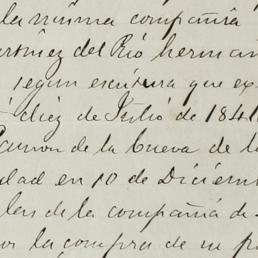 la misma compañia
artinez del Rio herman
segun escritura que ex
diez de Julio de 184
Ramon de la Cueva de l
dad en 10 de Diciem
les de la compañia de
la compra de un